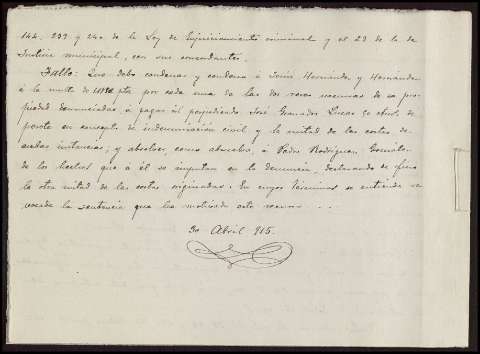 142, 239 y 240 de la Ley de Enjuiciamiento criminal y el 23 de la de
Justicia municipal, con sus concordantes.
Fallo: Que debo condenar y condeno á Hernandez y Hernandez
á la multa de pta por cada una de las dos reses vacunas de su pro-
piedad denunciadas, á pagar al perjudicado José Granados Lucas 50 cts. de
peseta en concepto de indemnización civil y la mitad de las costas de
ambas instancias; y absolver, como absuelvo, á Pedro Rodriguez González
de los hechos que á él se imputan en la denuncia, declarando de oficio
la otra mitad de las costas originadas. En cuyos términos se entiende re-
vocada la sentencia que ha motivado este recurso...
30 Abril 915.